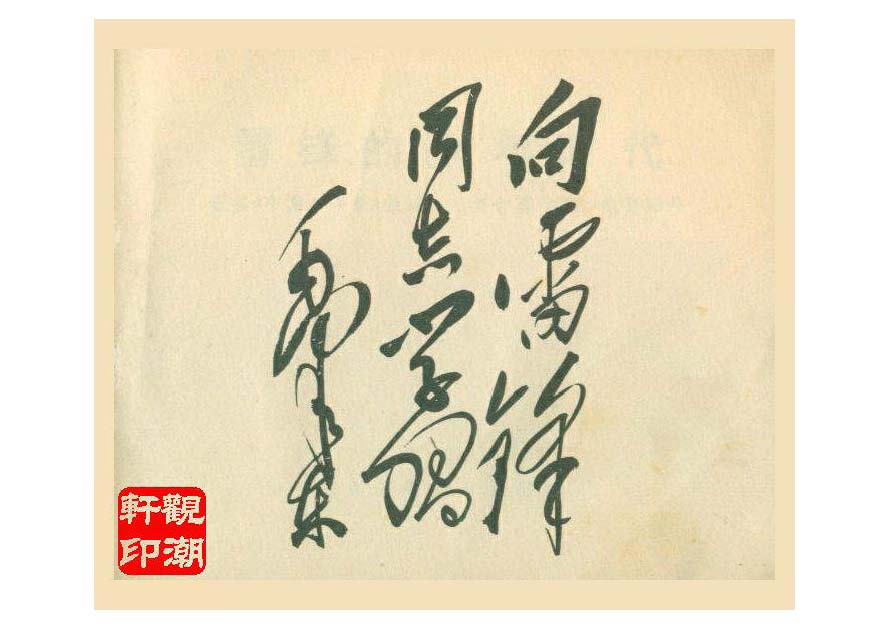 向雷锋
同志学习
毛泽东
觀潮
軒印